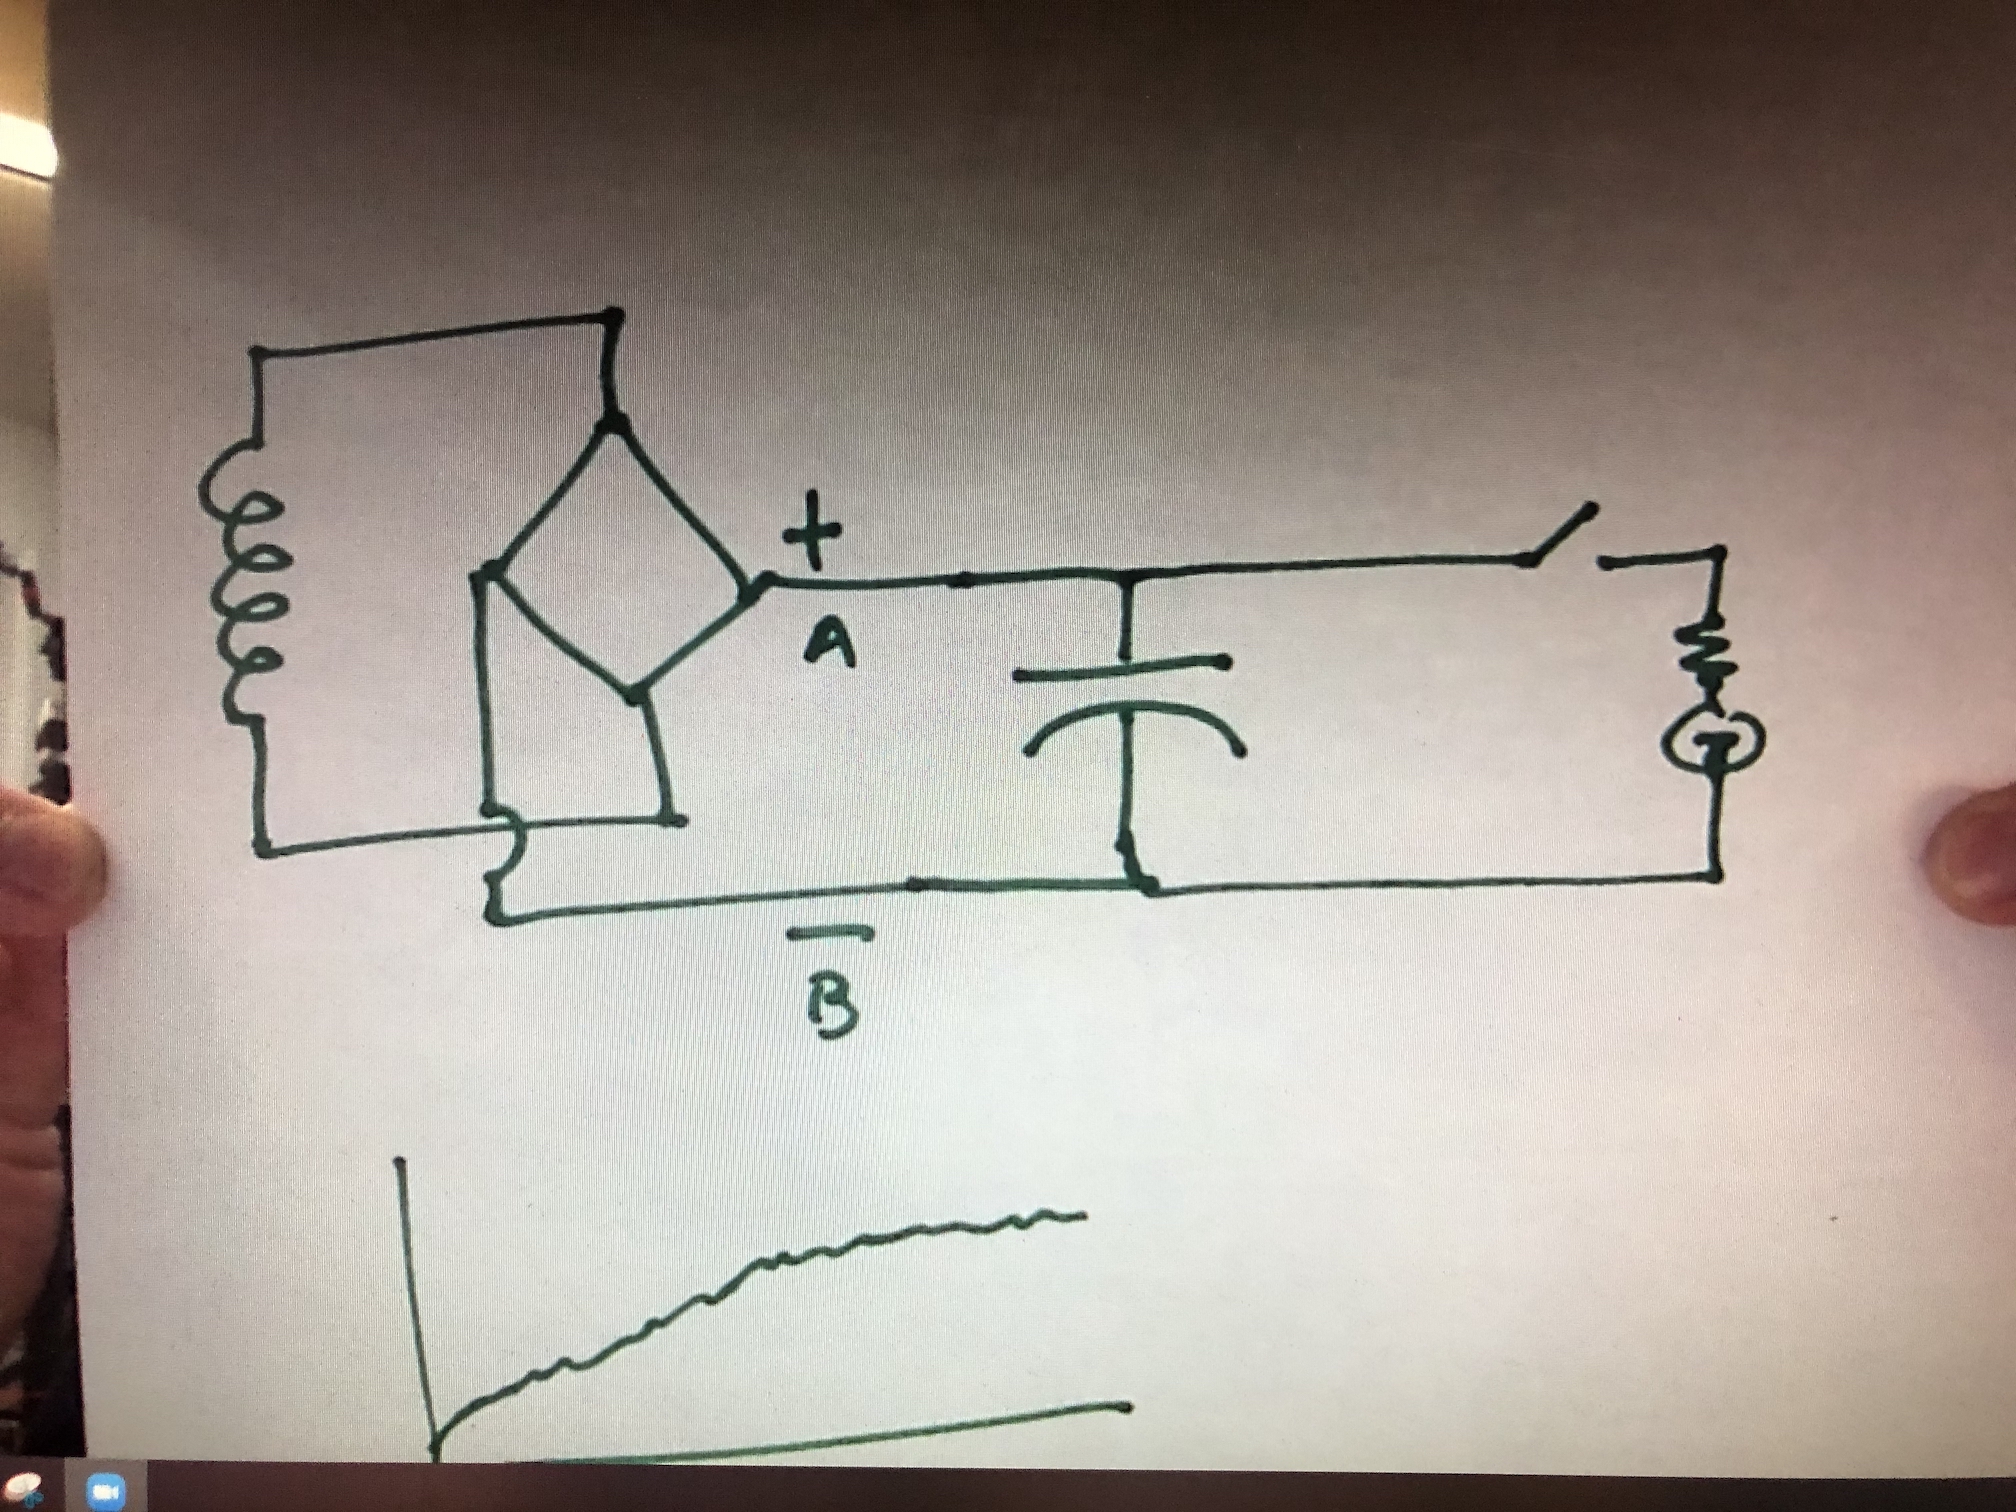 +
A
−
B